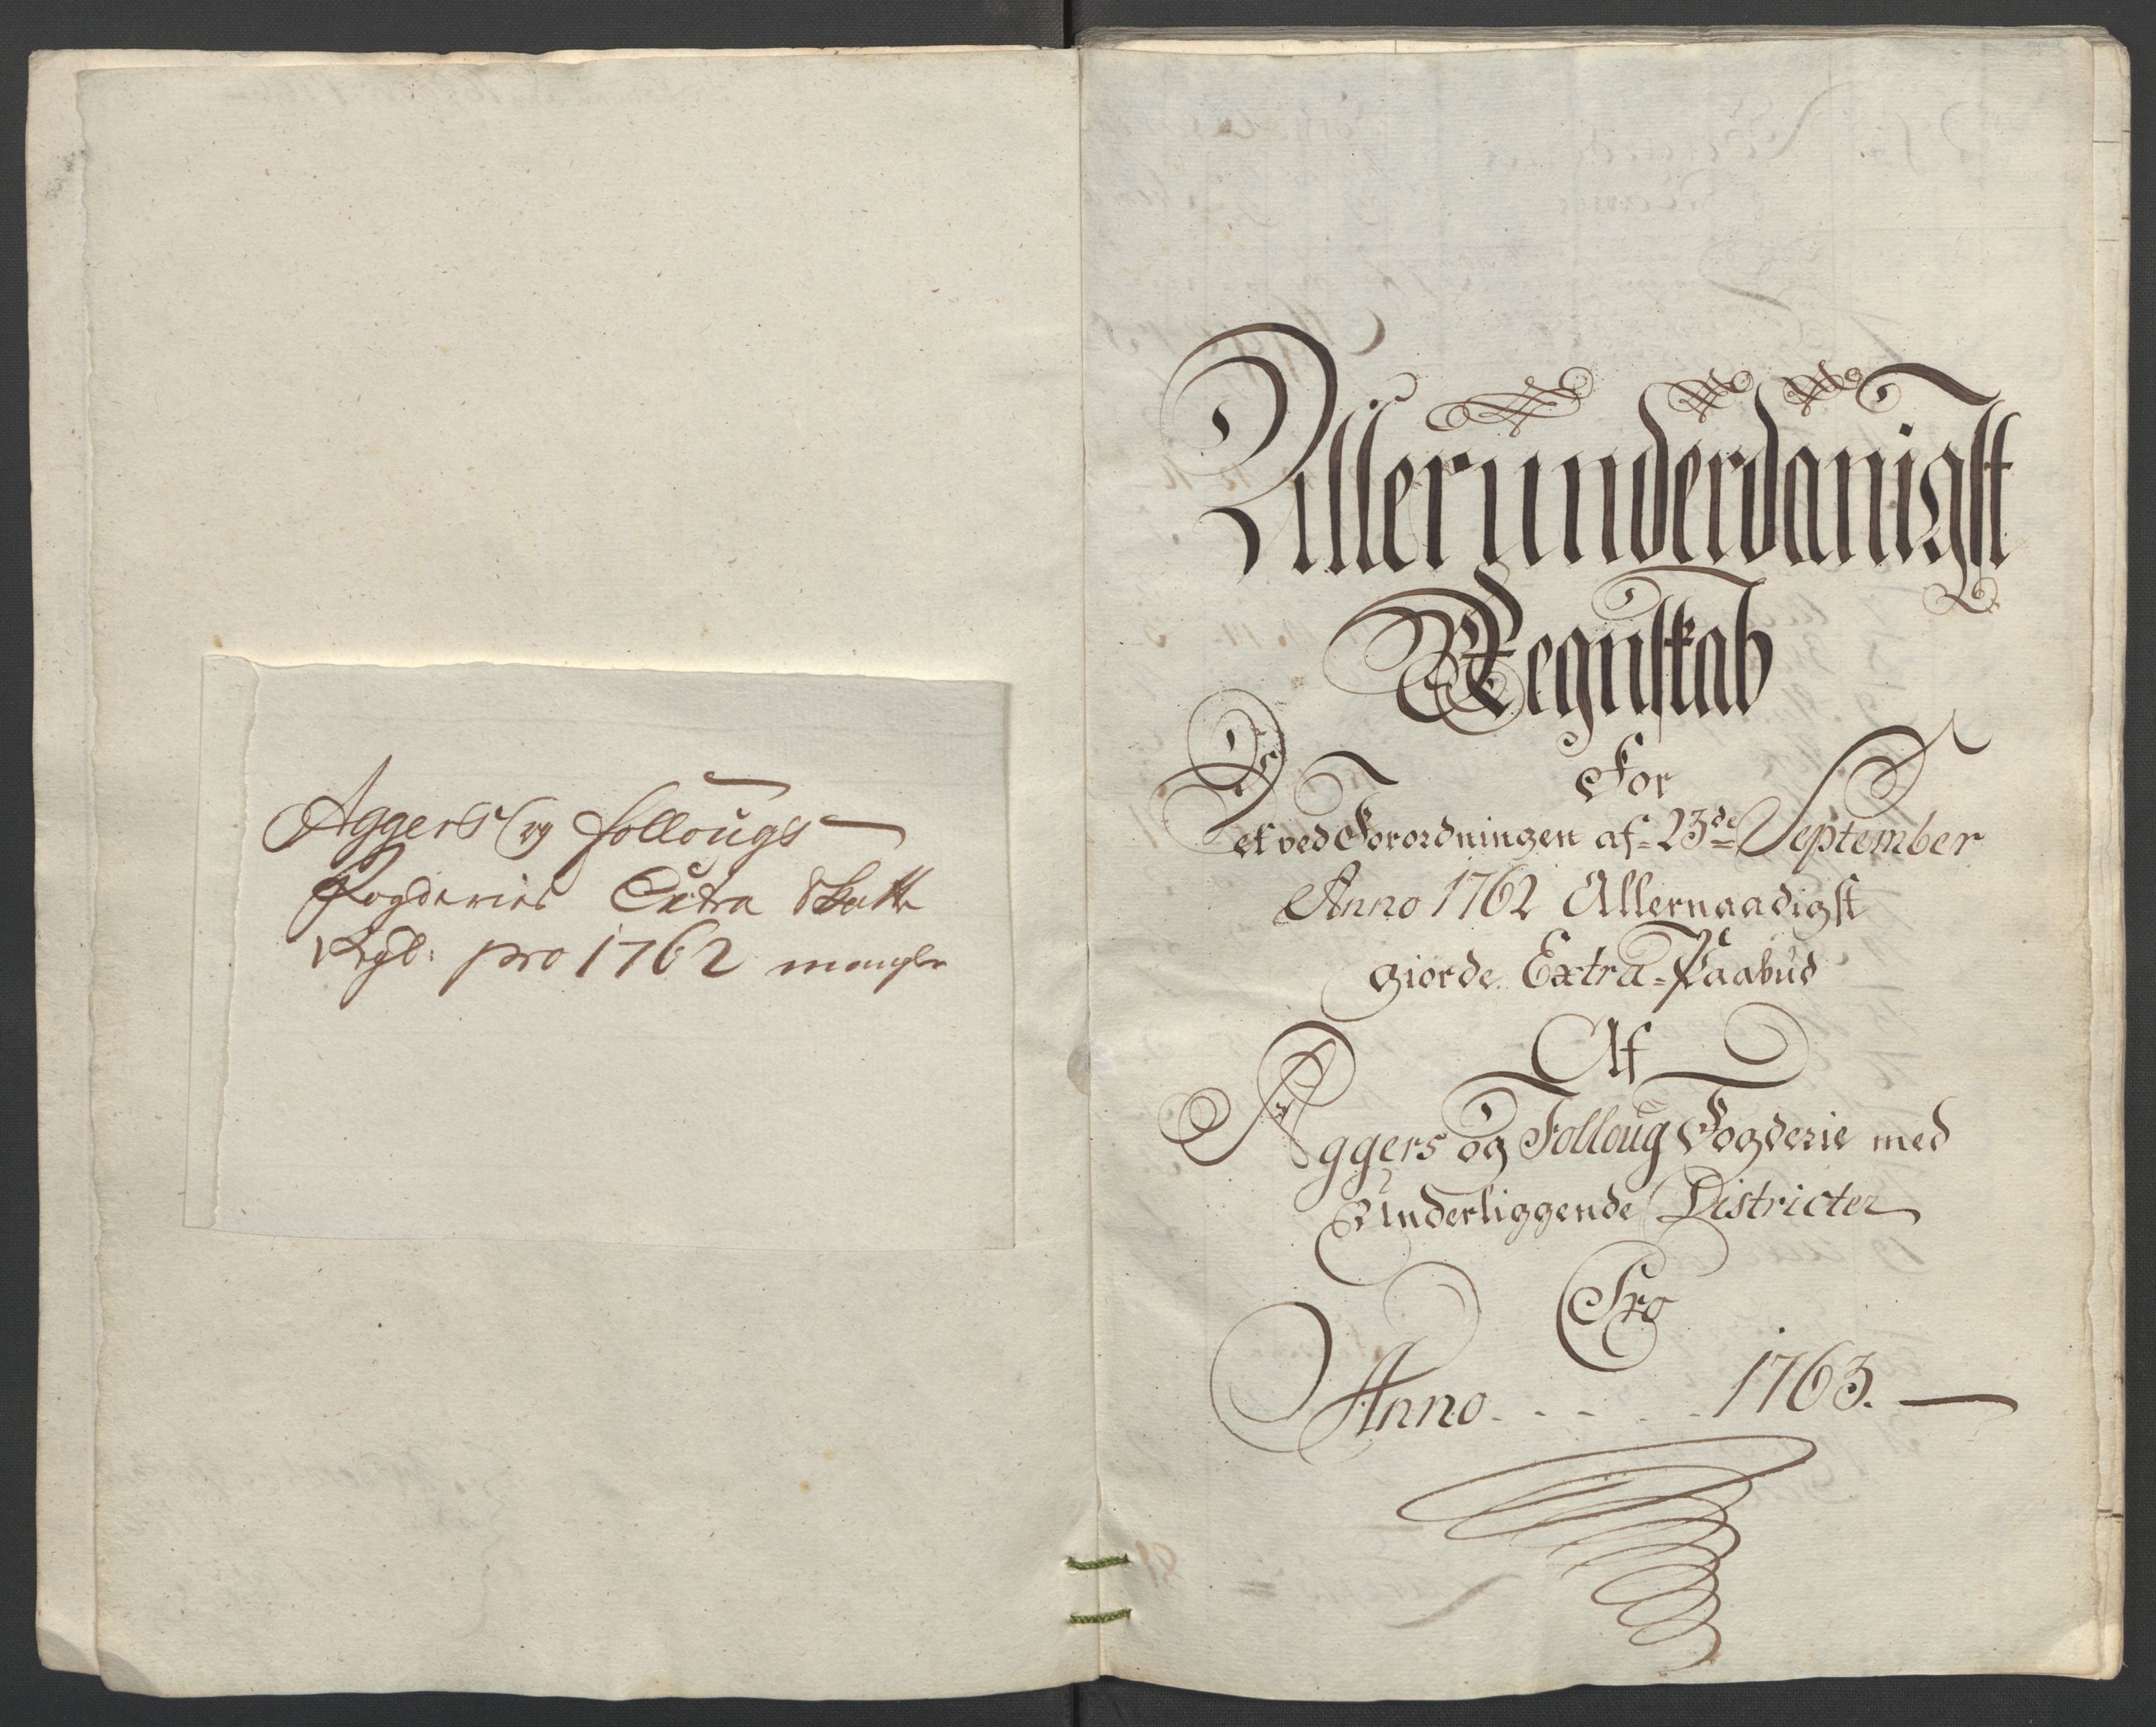 Aggers og Follougs
Fogderies Extra Skatte
Rgb: pro 1762 mangler
Allerunderdanigst
Regnskab
For
Det ved Forordningen af 23de September
Anno 1762 Allernaadigst
giorde Extra-Paabud
Af
Aggers og Folloug Fogderie med
Underliggende Districter
Pro
Anno - - - - - 1763.